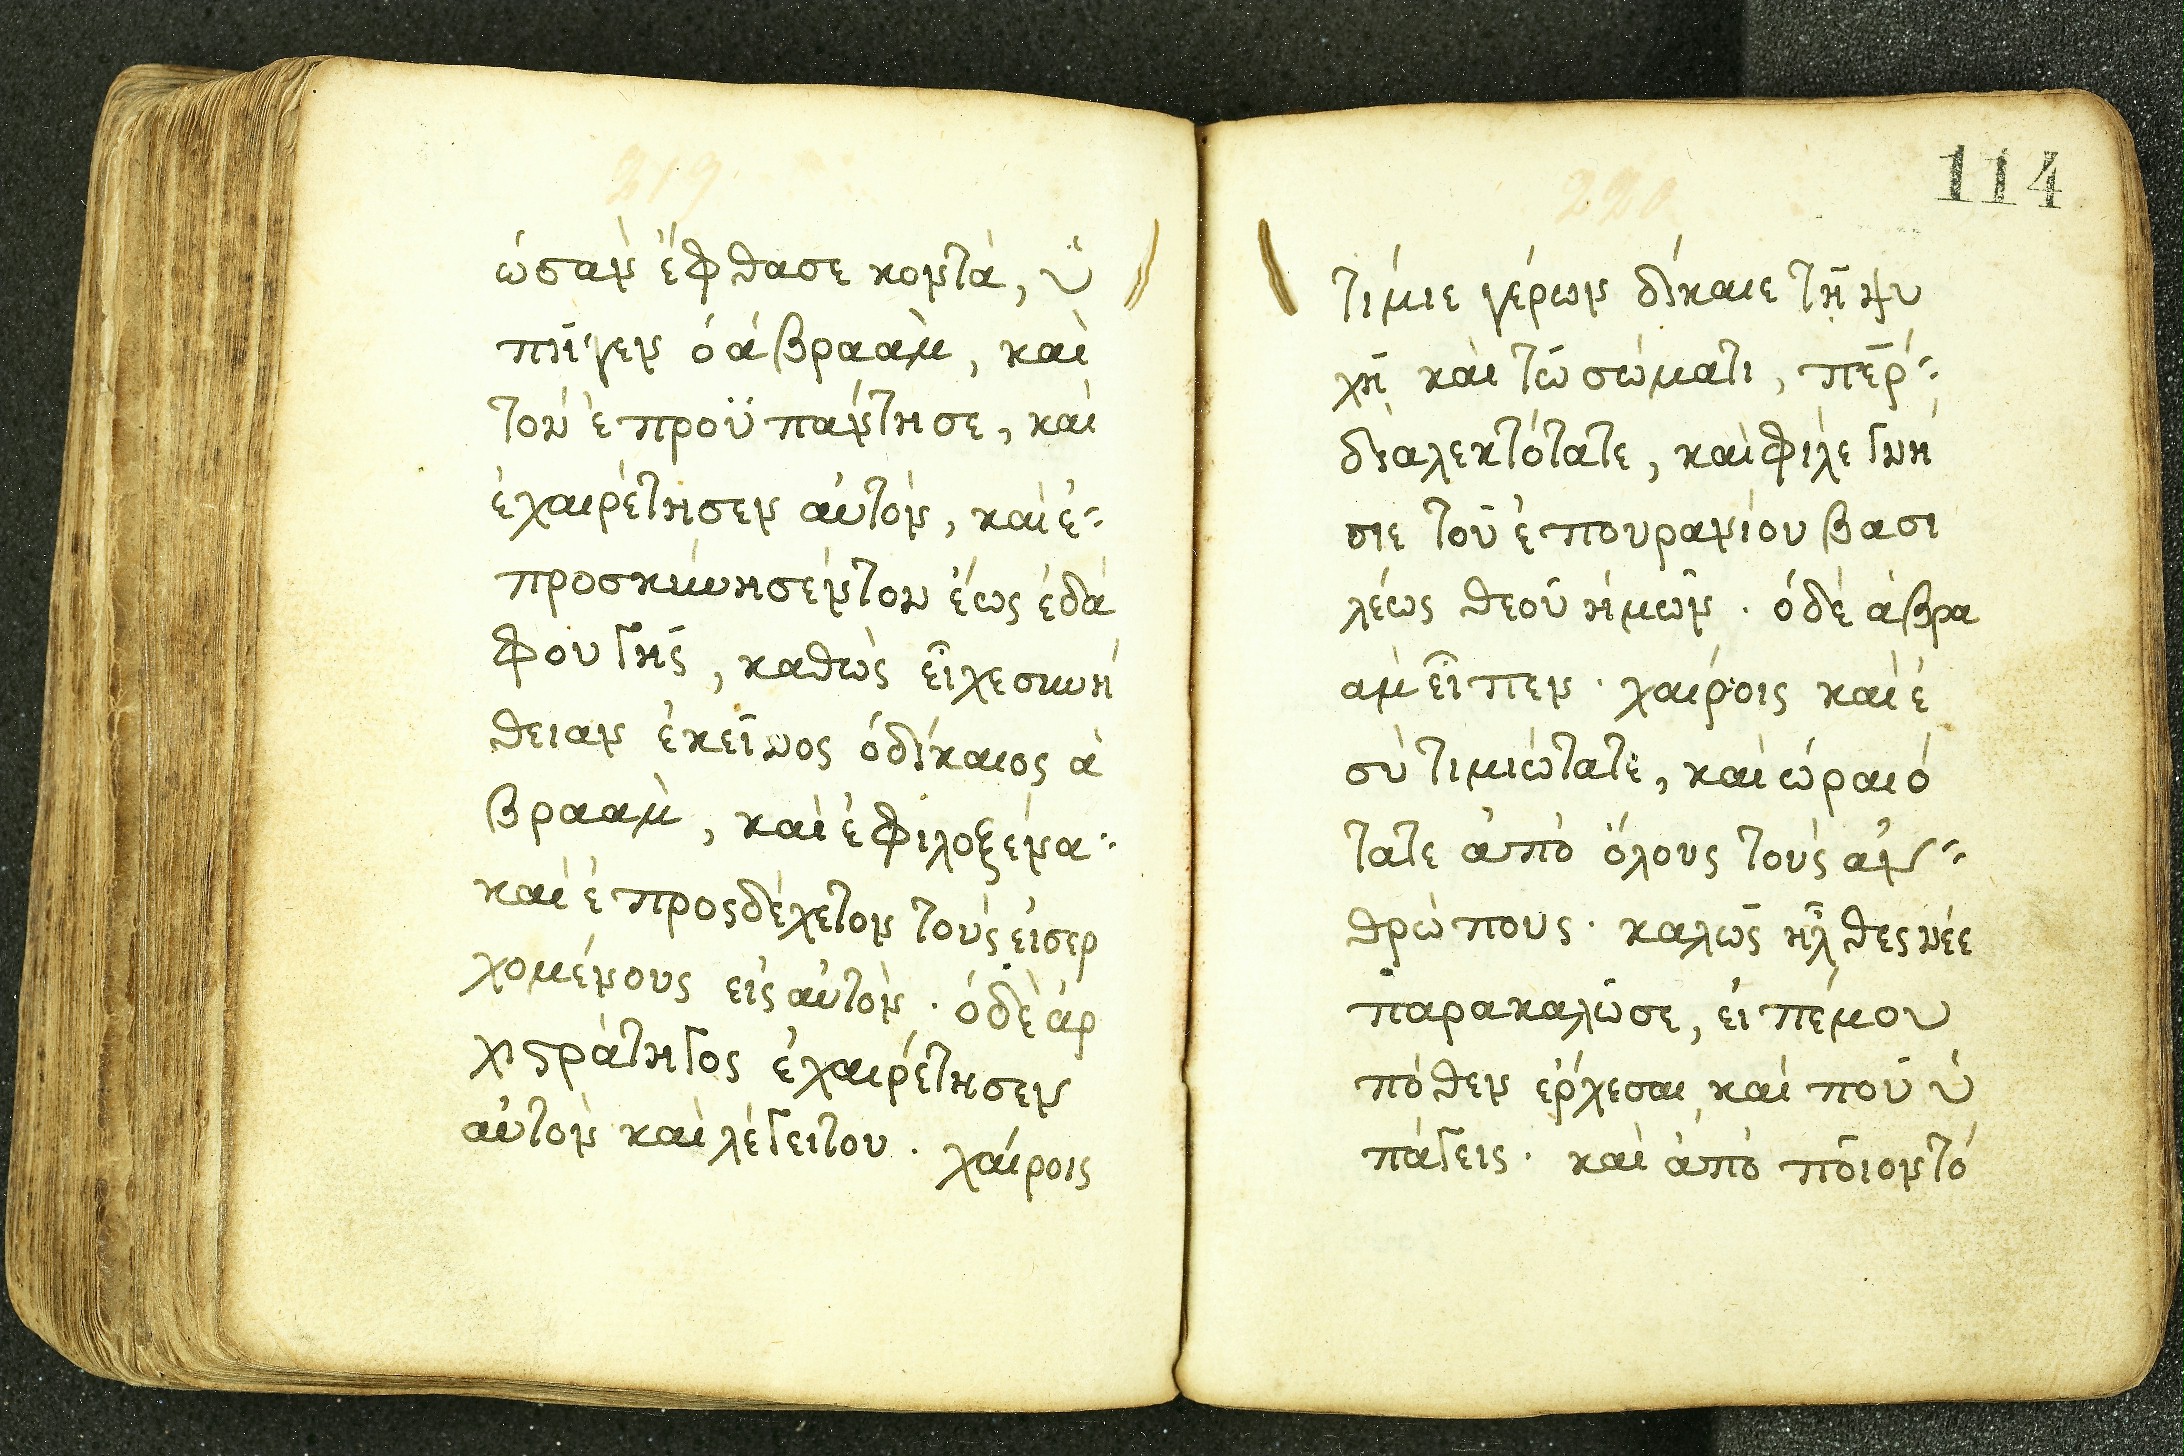 219
ὡσὰν ἔφθασε κοντά, ὑ
πῆγεν ὁ ἀβραὰμ, καὶ
τὸν ἐπροϋπάντησε, καὶ
ἐχαιρέτησεν αὐτὸν, καὶ ἐ=
προσκύνησέν τον ἕως ἐδά
φου γῆς, καθὼς εἶχε συνή
θειαν ἐκεῖνος ὁ δίκαιος ἀ
βραὰμ, καὶ ἐφιλοξένα=
καὶ ἐπροςδέχετον τοὺς εἰσερ
χομένους εἰς αὐτὸν. ὁ δὲ ἀρ
χιϛράτηγος ἐχαιρέτησεν
αὐτὸν καὶ λέγει του. χαίροις
220
114
τίμιε γέρων δίκαιε τῇ ψυ
χῇ καὶ τῷ σώματι, περ=
διαλεκτότατε, καὶ φίλε γνή
σιε τοῦ ἐπουρανίου βασι
λέως θεοῦ ἡμῶν. ὁ δὲ ἀβρα
ὰμ εἶπεν. χαίροις καὶ ἐ
σὺ τιμιώτατε, καὶ ὡραιό
τατε ἀπὸ ὅλους τοὺς ἀν=
θρώπους. καλῶς ἦλθες νέε
παρακαλῶ σε, εἰπέ μου
πόθεν ἔρχεσαι, καὶ ποῦ ὑ
πάγεις. καὶ ἀπὸ ποῖον τό